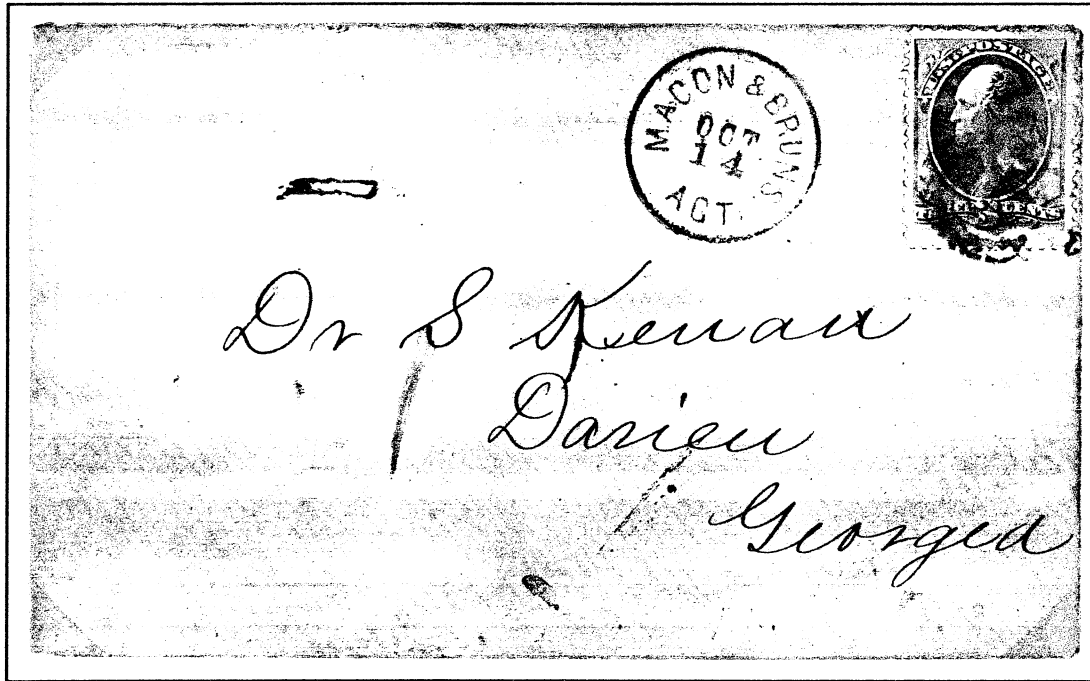 MACON & BRUNS.
OCT
14
AGT.
U.S. POSTAGE
THREE CENTS
Dr S Kenan
Darien
Georgea